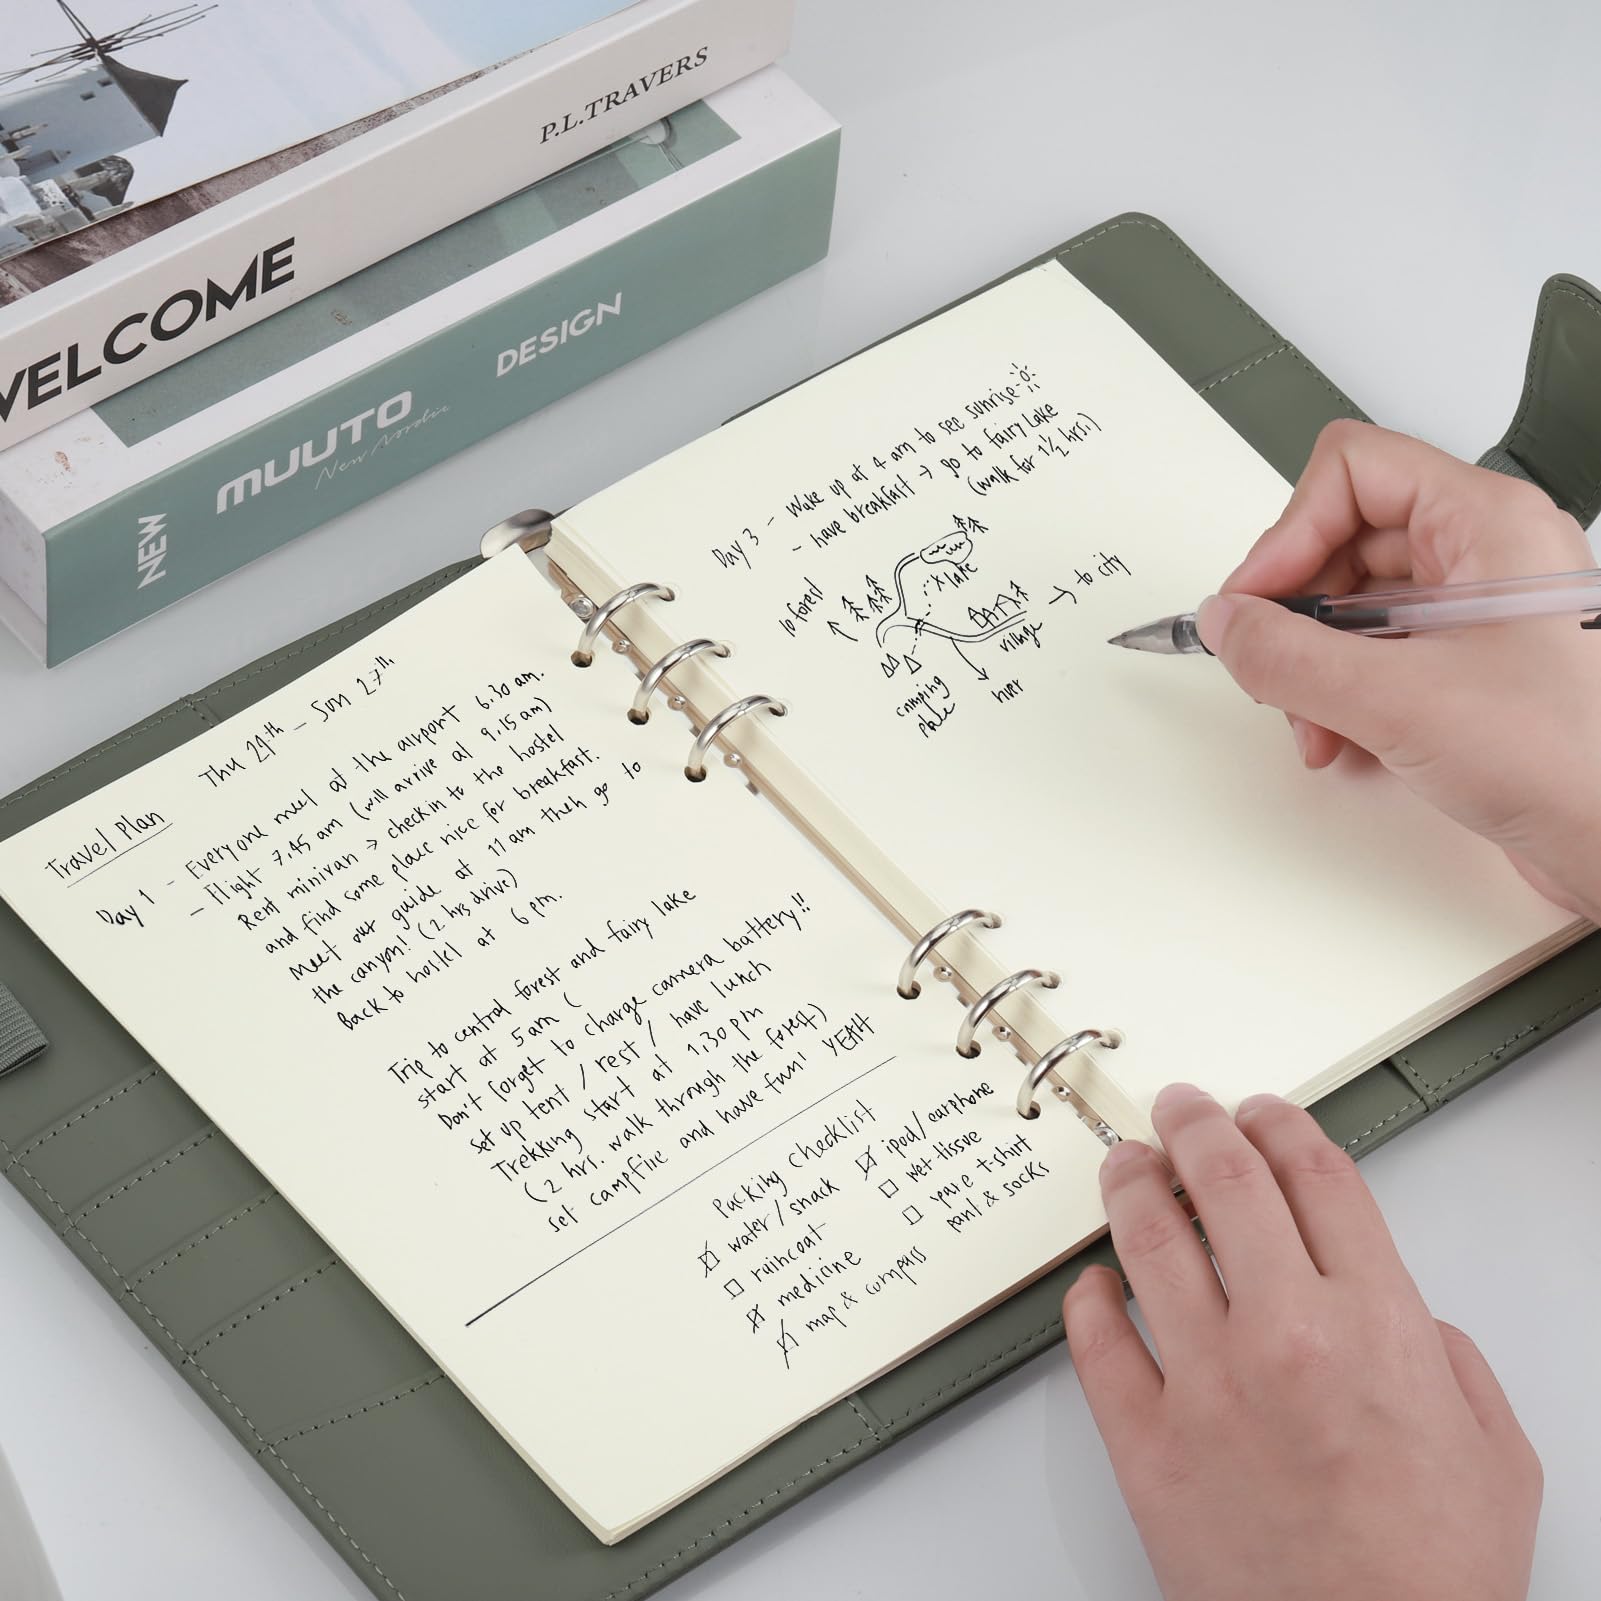 P.L.TRAVERS
WELCOME
NEW
MUUTO
New Nordic
DESIGN
Travel Plan
Thu 24th - Sun 27th
Day 1 - Everyone meet at the airport 6.30 am.
- Flight 7.45 am (will arrive at 9.15 am)
Rent minivan → checkin to the hostel
and find some place nice for breakfast.
Meet our guide at 11 am then go to
the canyon! (2 hrs drive)
Back to hostel at 6 pm.
Trip to central forest and fairy lake
start at 5 am (
Don't forget to charge camera battery!!
Set up tent / rest / have lunch
Trekking start at 1,30 pm
(2 hrs. walk through the forest)
set campfire and have fun! YEAH
Packing Checklist
water/snack
raincoat
medicine
map & compass
ipod/earphone
wet-tissue
t-shirt
pant & socks
Day 3 - Wake up at 4 am to see sunrise
- have breakfast → go to fairy Lake
(walk for 1½ hrs.)
to forest
lake
→ to city
village
camping
river